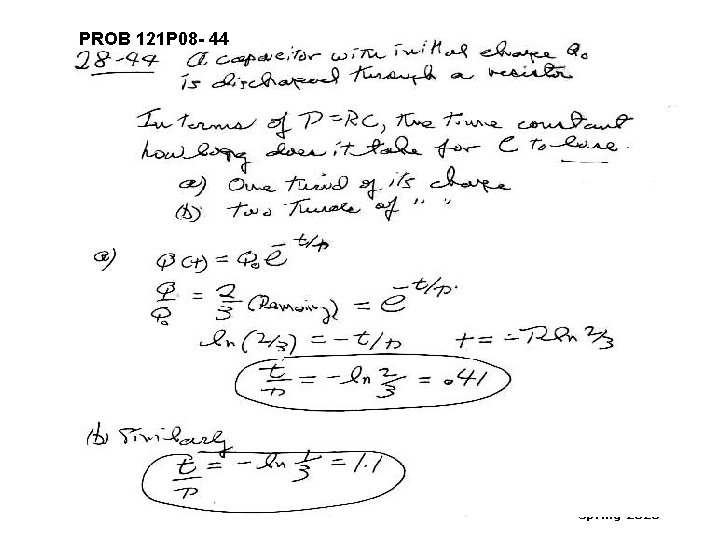 PROB 121P08- 44
28-44 A capacitor with initial charge Q₀
is discharged through a resistor
In terms of τ=RC, the time constant
how long does it take for C to lose
a) One third of its charge
(b) two thirds of " "
a) q(t) = q₀e^(-t/τ)
q/q₀ = 2/3 (Remaining) = e^(-t/τ)
ln(2/3) = -t/τ t = -τ ln 2/3
t/τ = -ln 2/3 = .41
(b) Similarly
t/τ = -ln 1/3 = 1.1